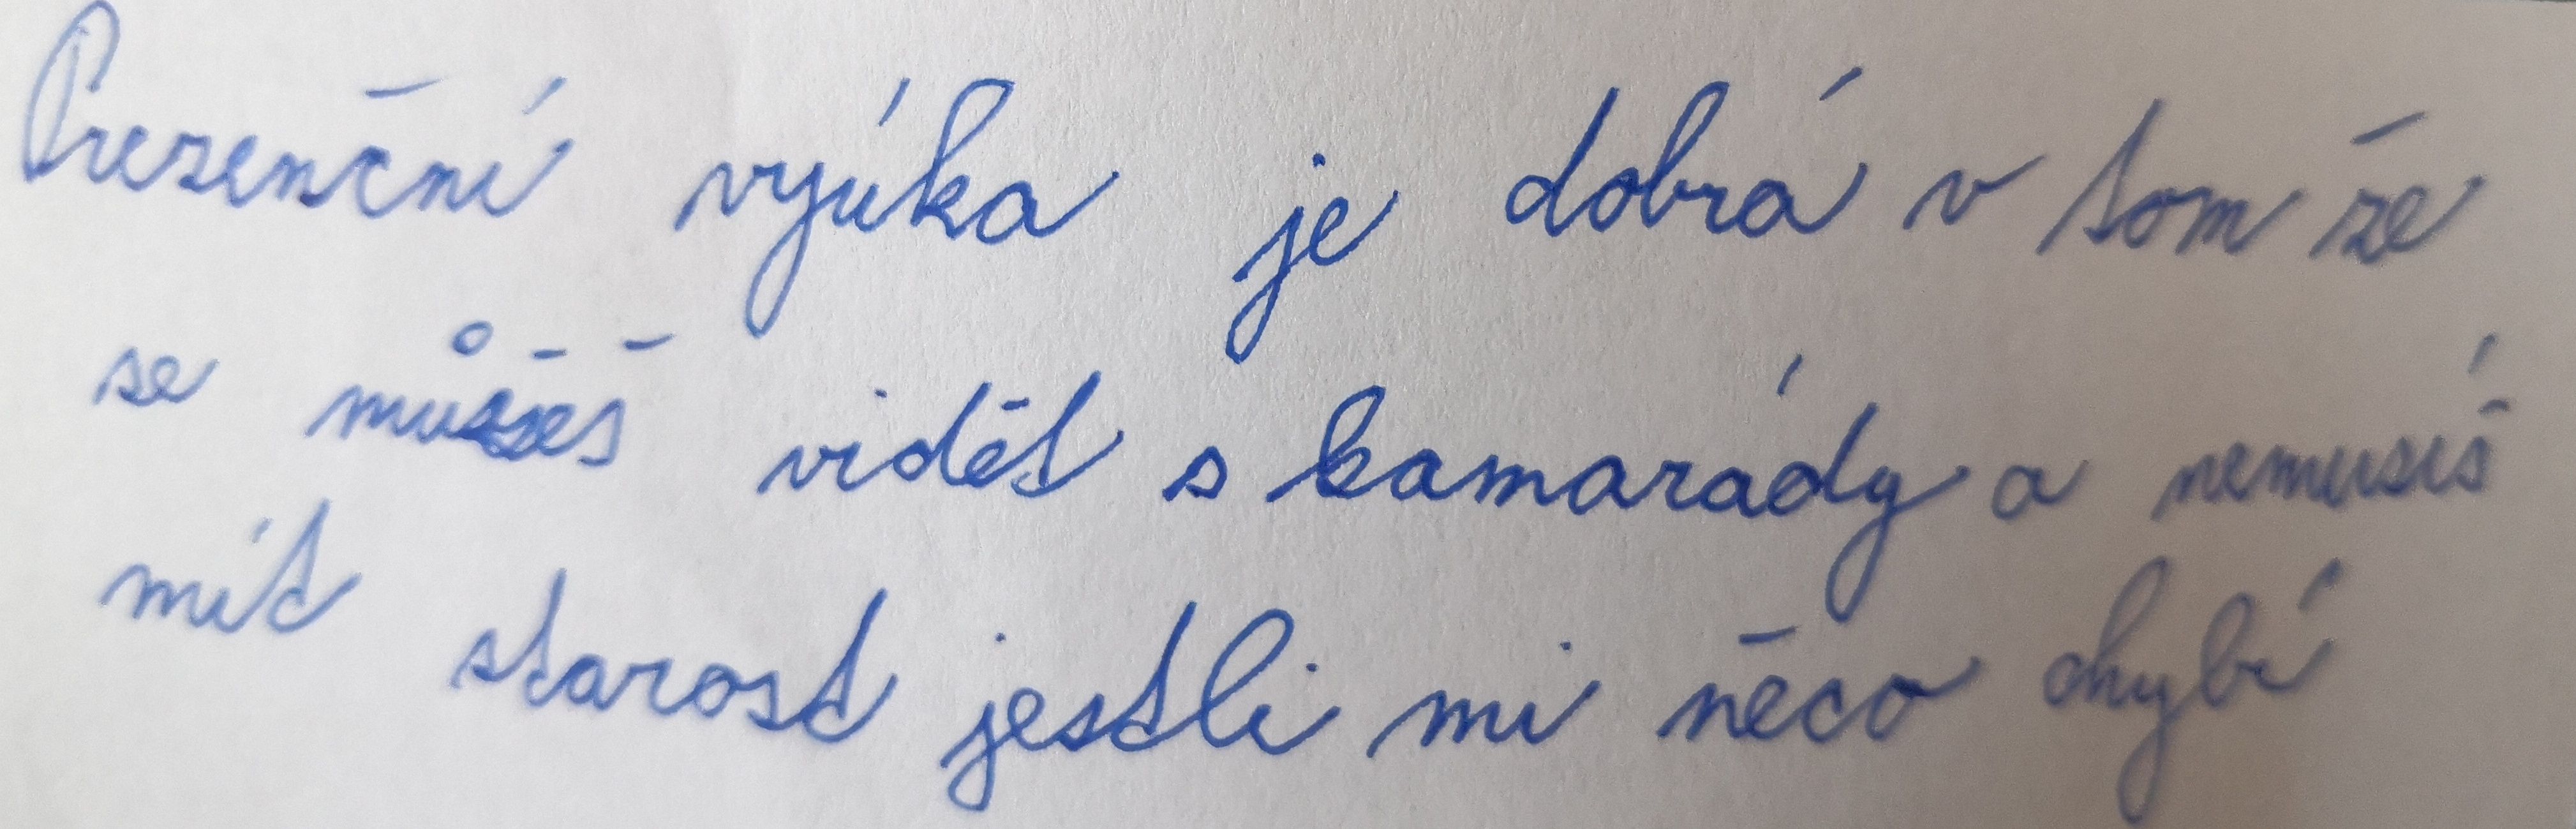 Prezenční výúka je dobrá v tom že
se můžeš vidět s kamarády a nemusíš
mít starost jestli mi něco chybí